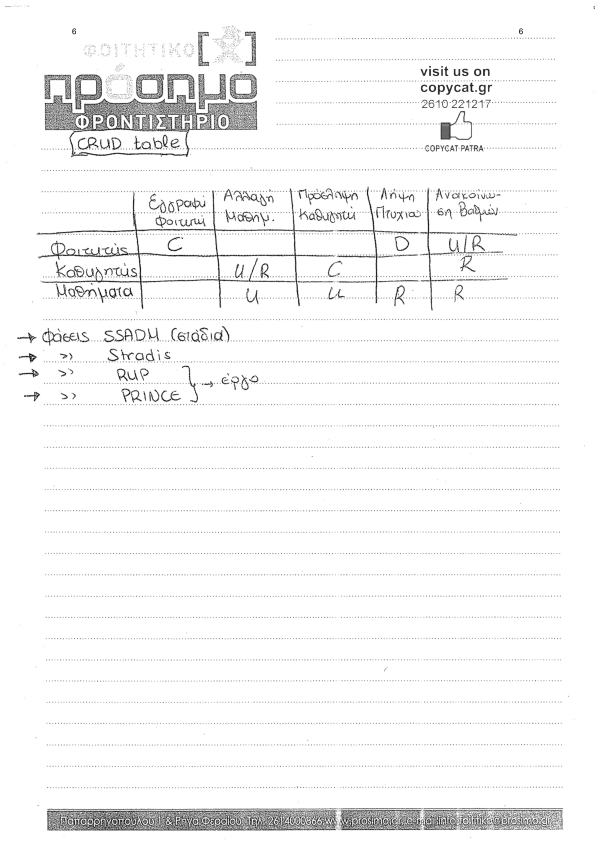 6
6
ΦΟΙΤΗΤΙΚΟ
πρόσημο
ΦΡΟΝΤΙΣΤΗΡΙΟ
visit us on
copycat.gr
2610 221217
COPYCAT PATRA
CRUD table
Εγγραφή Φοιτητή | Αλλαγή Μαθήμ. | Πρόσληψη Καθηγητή | Λήψη Πτυχίου | Ανακοίνω-ση Βαθμών
Φοιτητής C D U/R
Καθηγητής U/R C R
Μαθήματα U U R R
→ Φάσεις SSADM (στάδια)
→ >> Stradis
→ >> RUP
→ έργο
→ >> PRINCE
Παπαρρηγοπούλου 1 & Ρήγα Φεραίου, Τηλ. 2614000866, www.prosimo.gr